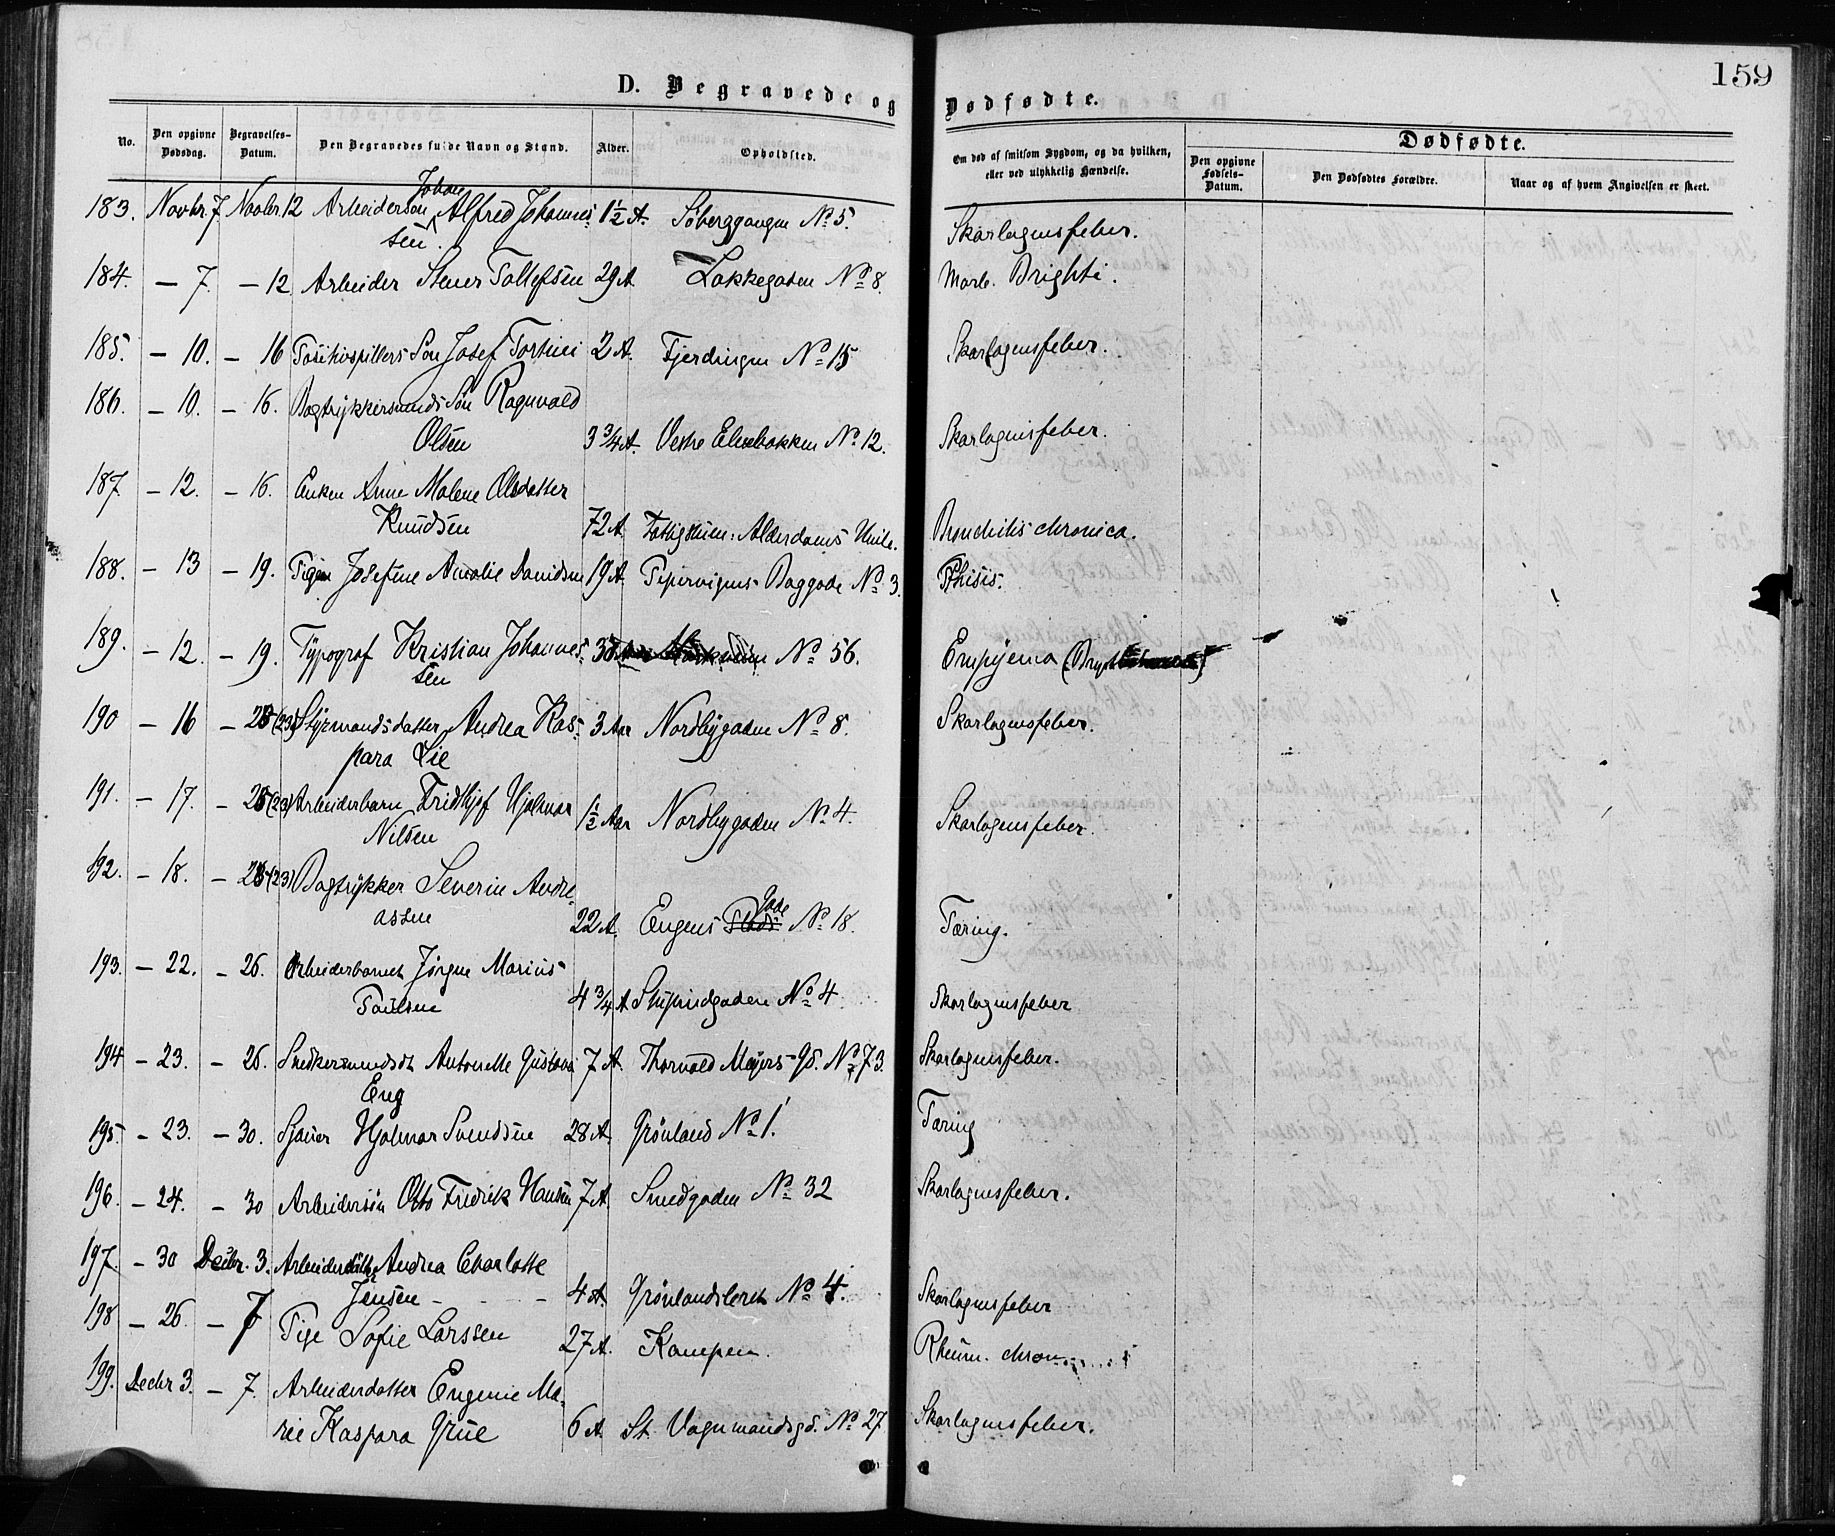 159
D. Begravede og Dødfødte.
No. Den opgivne Dødsdag. Begravelses-Datum. Den Begravedes fulde Navn og Stand. Alder. Opholdsted. Om død af smitsom Sygdom, og da hvilken, eller ved ulykkelig Hændelse. Dødfødte. Den opgivne Fødsels-Datum. Den Dødfødtes Forældre. Naar og af hvem Angivelsen er skeet.
Johan
183. Novbr. 7 Novbr. 12 Arbeidersøn Alfred Johannes- 1½ A. Søberggangen No 5. Skarlagensfeber.
sen.
184. — 7. — 12 Arbeider Stener Tollefsen 29 A Lakkegaden No 8. Morb. Brighti.
185. — 10. — 16 Positivspillers Søn Josef Tortini 2 A. Fjerdingen No 15 Skarlagensfeber.
186. — 10. — 16. Bogtrykkersvends Søn Ragnvald
Olsen 3 ¾ A. Vestre Elvebakken No 12. Skarlagensfeber.
187. — 12. — 16. Enken Anne Malene Olsdatter
Knudsen 72 A. Fattighuse: Alderdoms Hvile. Bronchitis chronica.
188. — 13 — 19. Pigen Josefine Amalie Davidsen 19 A Pipervigens Baggade No 3. Phisis.
189. — 12. — 19. Typograf Kristian Johannes- 38 No 56. Empyema
sen
190 — 16 — 23 (23) Styrmandsdatter Andrea Kas- 3 Aar Nordbygaden No 8. Skarlagensfeber.
para Lie
191. — 17. — (23) Arbeiderbarn Fridthjof Hjalmar
Nilsen 1½ Aar Nordbygaden No 4. Skarlagensfeber.
192. — 18. — (23) Bogtrykker Severin Andre-
Gade
assen 22 A. Engens No 18. Tæring.
193. — 22. — 26. Arbeiderbarnet Jørgen Marius
Paulsen 4 ¾ A Stupindgaden No 4 Skarlagensfeber
194 — 23. — 26. Snedkersvendsdt Antonette Gustava 7 A Thorvald Meyers Gd. No 73. Skarlagensfeber.
Eng
195. — 23. — 30. Sjauer Hjalmar Svendsen 28 A Grønland No 1. Tæring
196. — 24. — 30 Arbeidersøn Otto Fredrik Hansen 7 A Smedgaden No 32 Skarlagensfeber.
197. — 30 Decbr. 3. Arbeiderdatter Andrea Charlotte
Jensen — 4 A. Grønlandsleret No 4. Skarlagensfeber
198 — 26. — 7 Pige Sofie Larssen 27 A. Kampen. Rheum. chron
199. Decbr 3. — 7. Arbeiderdatter Eugenie Ma-
rie Kaspara Grue 6 A. St. Vognmandsgd. No 27 Skarlagensfeber.